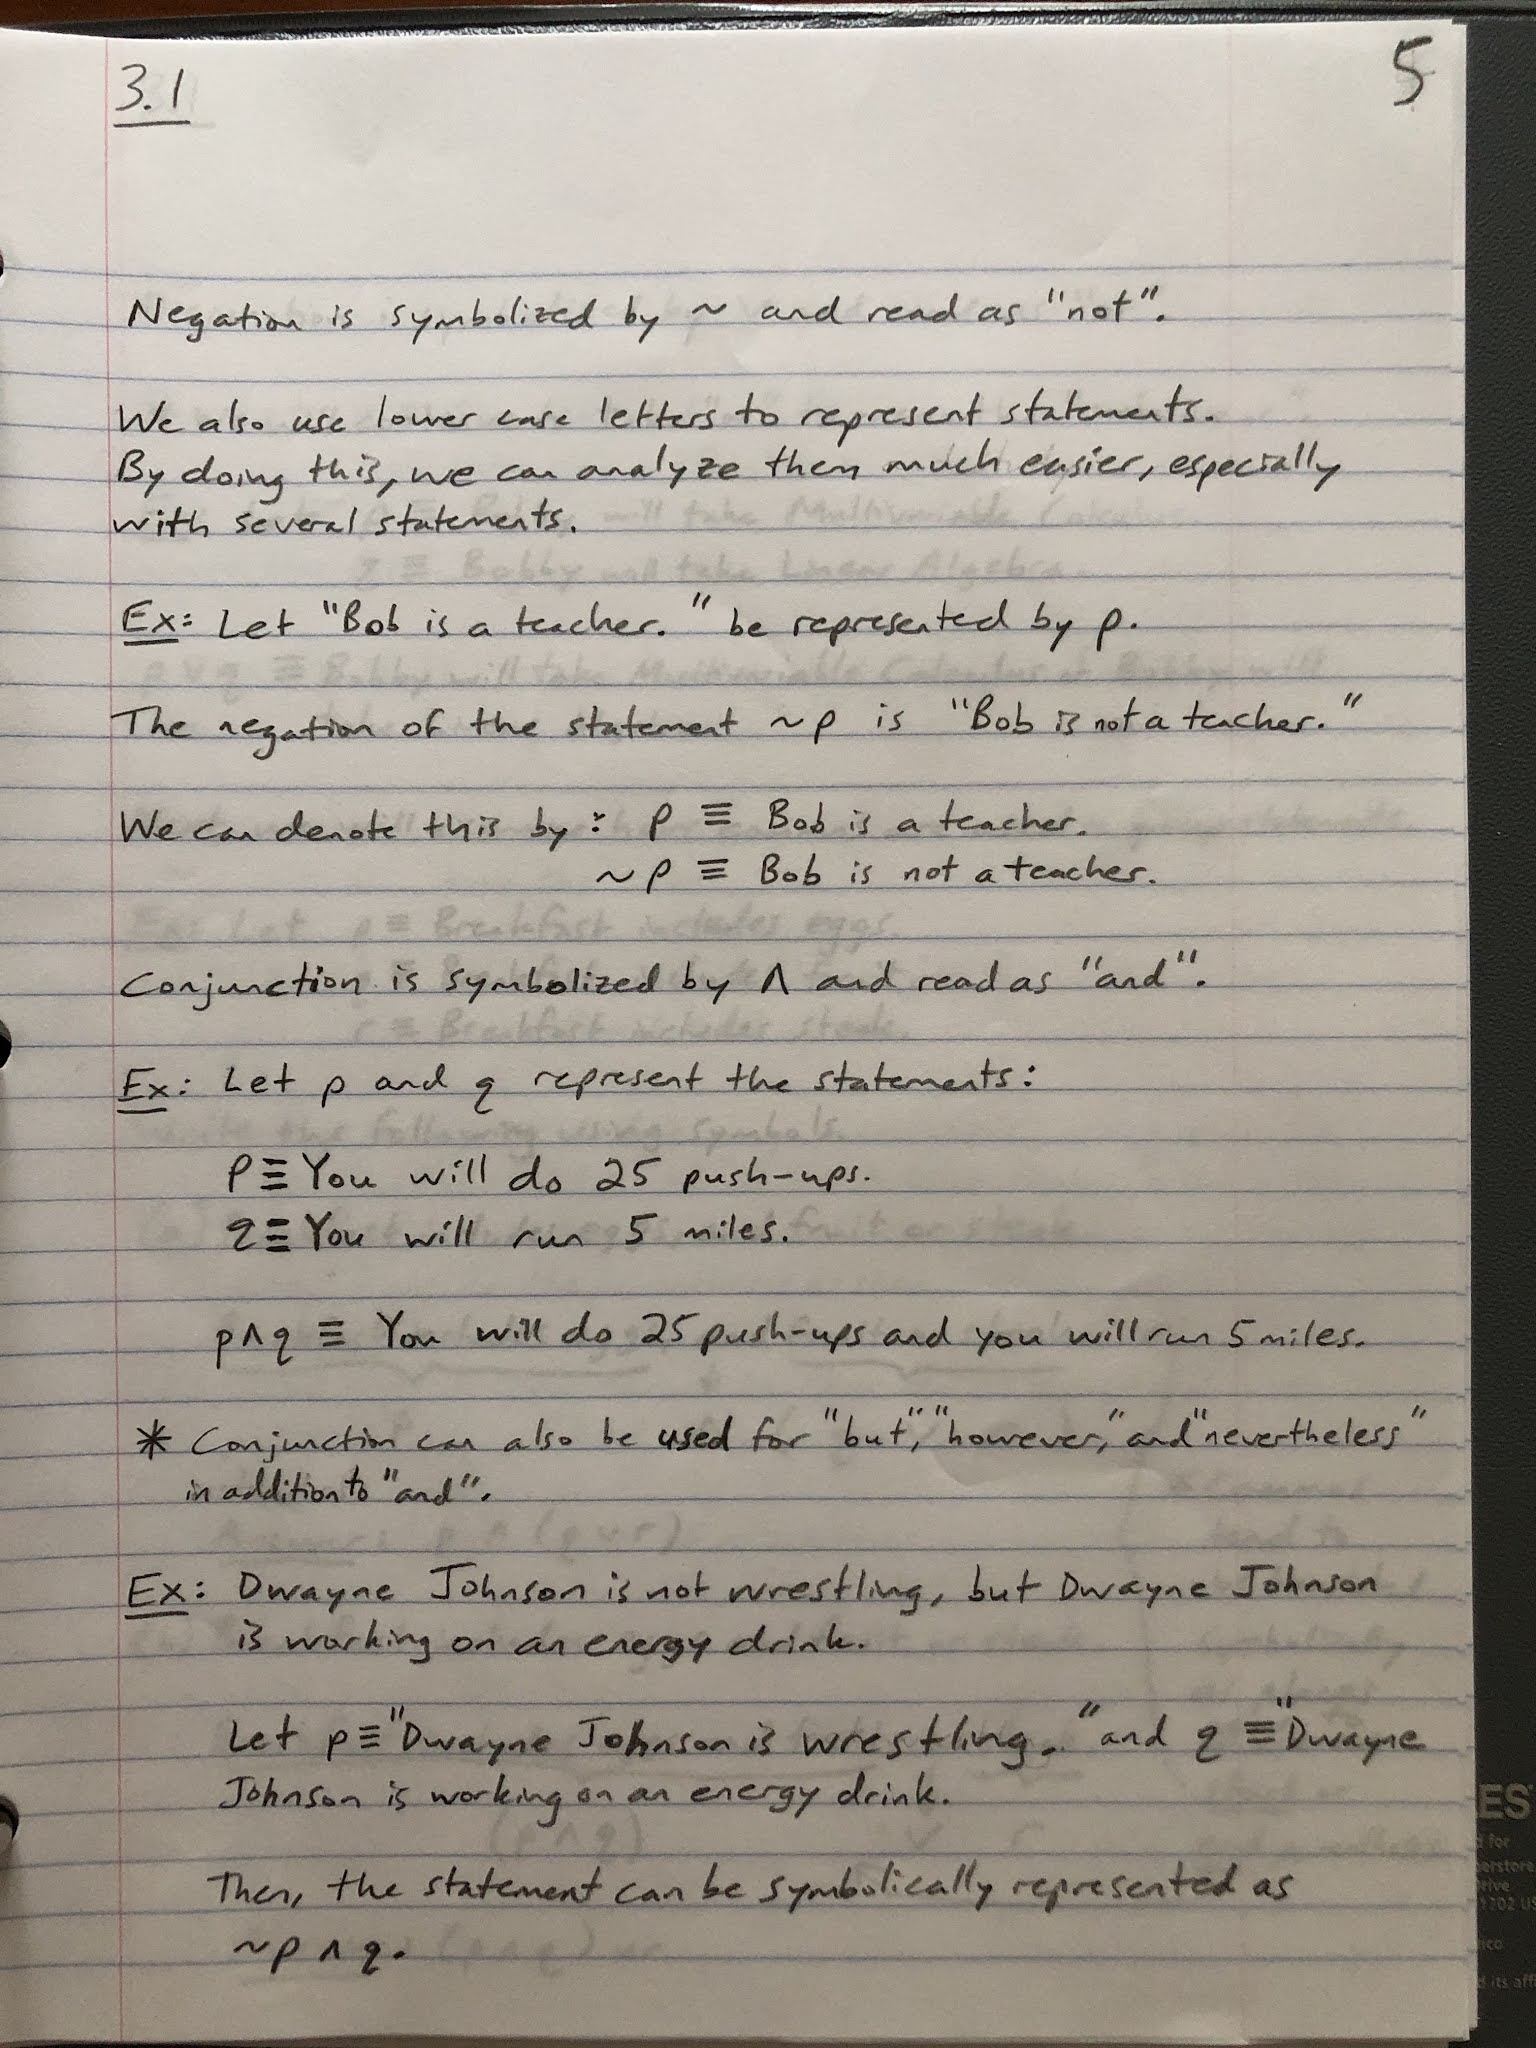 3.1
5
Negation is symbolized by ~ and read as "not".
We also use lower case letters to represent statements.
By doing this, we can analyze them much easier, especially
with several statements.
Ex: Let "Bob is a teacher." be represented by p.
The negation of the statement ~p is "Bob is not a teacher."
We can denote this by: p ≡ Bob is a teacher.
~p ≡ Bob is not a teacher.
Conjunction is symbolized by ∧ and read as "and".
Ex: Let p and q represent the statements:
P ≡ You will do 25 push-ups.
q ≡ You will run 5 miles.
p∧q ≡ You will do 25 push-ups and you will run 5 miles.
* Conjunction can also be used for "but", "however," and "nevertheless"
in addition to "and".
Ex: Dwayne Johnson is not wrestling, but Dwayne Johnson
is working on an energy drink.
Let p ≡ "Dwayne Johnson is wrestling." and q ≡ "Dwayne
Johnson is working on an energy drink.
Then, the statement can be symbolically represented as
~p ∧ q.
ES
for
erstore
1202 US
ico
its affi